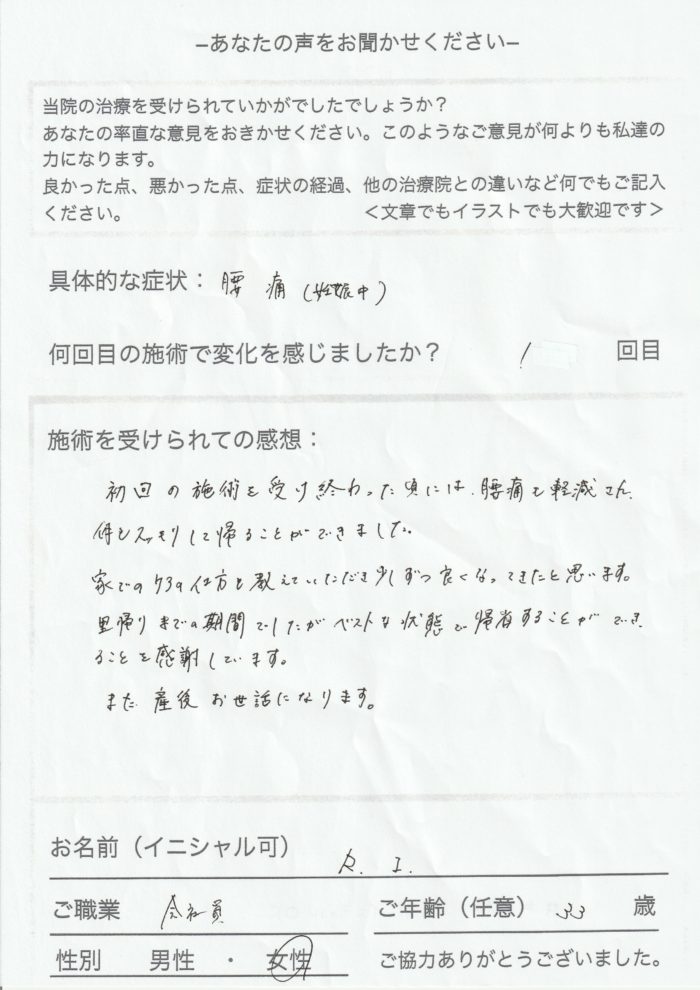 −あなたの声をお聞かせください−
当院の治療を受けられていかがでしたでしょうか？
あなたの率直な意見をおきかせください。このようなご意見が何よりも私達の
力になります。
良かった点、悪かった点、症状の経過、他の治療院との違いなど何でもご記入
ください。 ＜文章でもイラストでも大歓迎です＞
具体的な症状： 腰痛（妊娠中）
何回目の施術で変化を感じましたか？ 1 回目
施術を受けられての感想：
初回の施術を受け終わった頃には、腰痛も軽減され、
体もスッキリして帰ることができました。
家でのケアの仕方も教えていただき少しずつ良くなってきたと思います。
里帰りまでの期間でしたがベストな状態で帰省することができ
ることを感謝しています。
また、産後お世話になります。
お名前（イニシャル可） R. I.
ご職業 会社員 ご年齢（任意） 33 歳
性別 男性 ・ 女性 ご協力ありがとうございました。